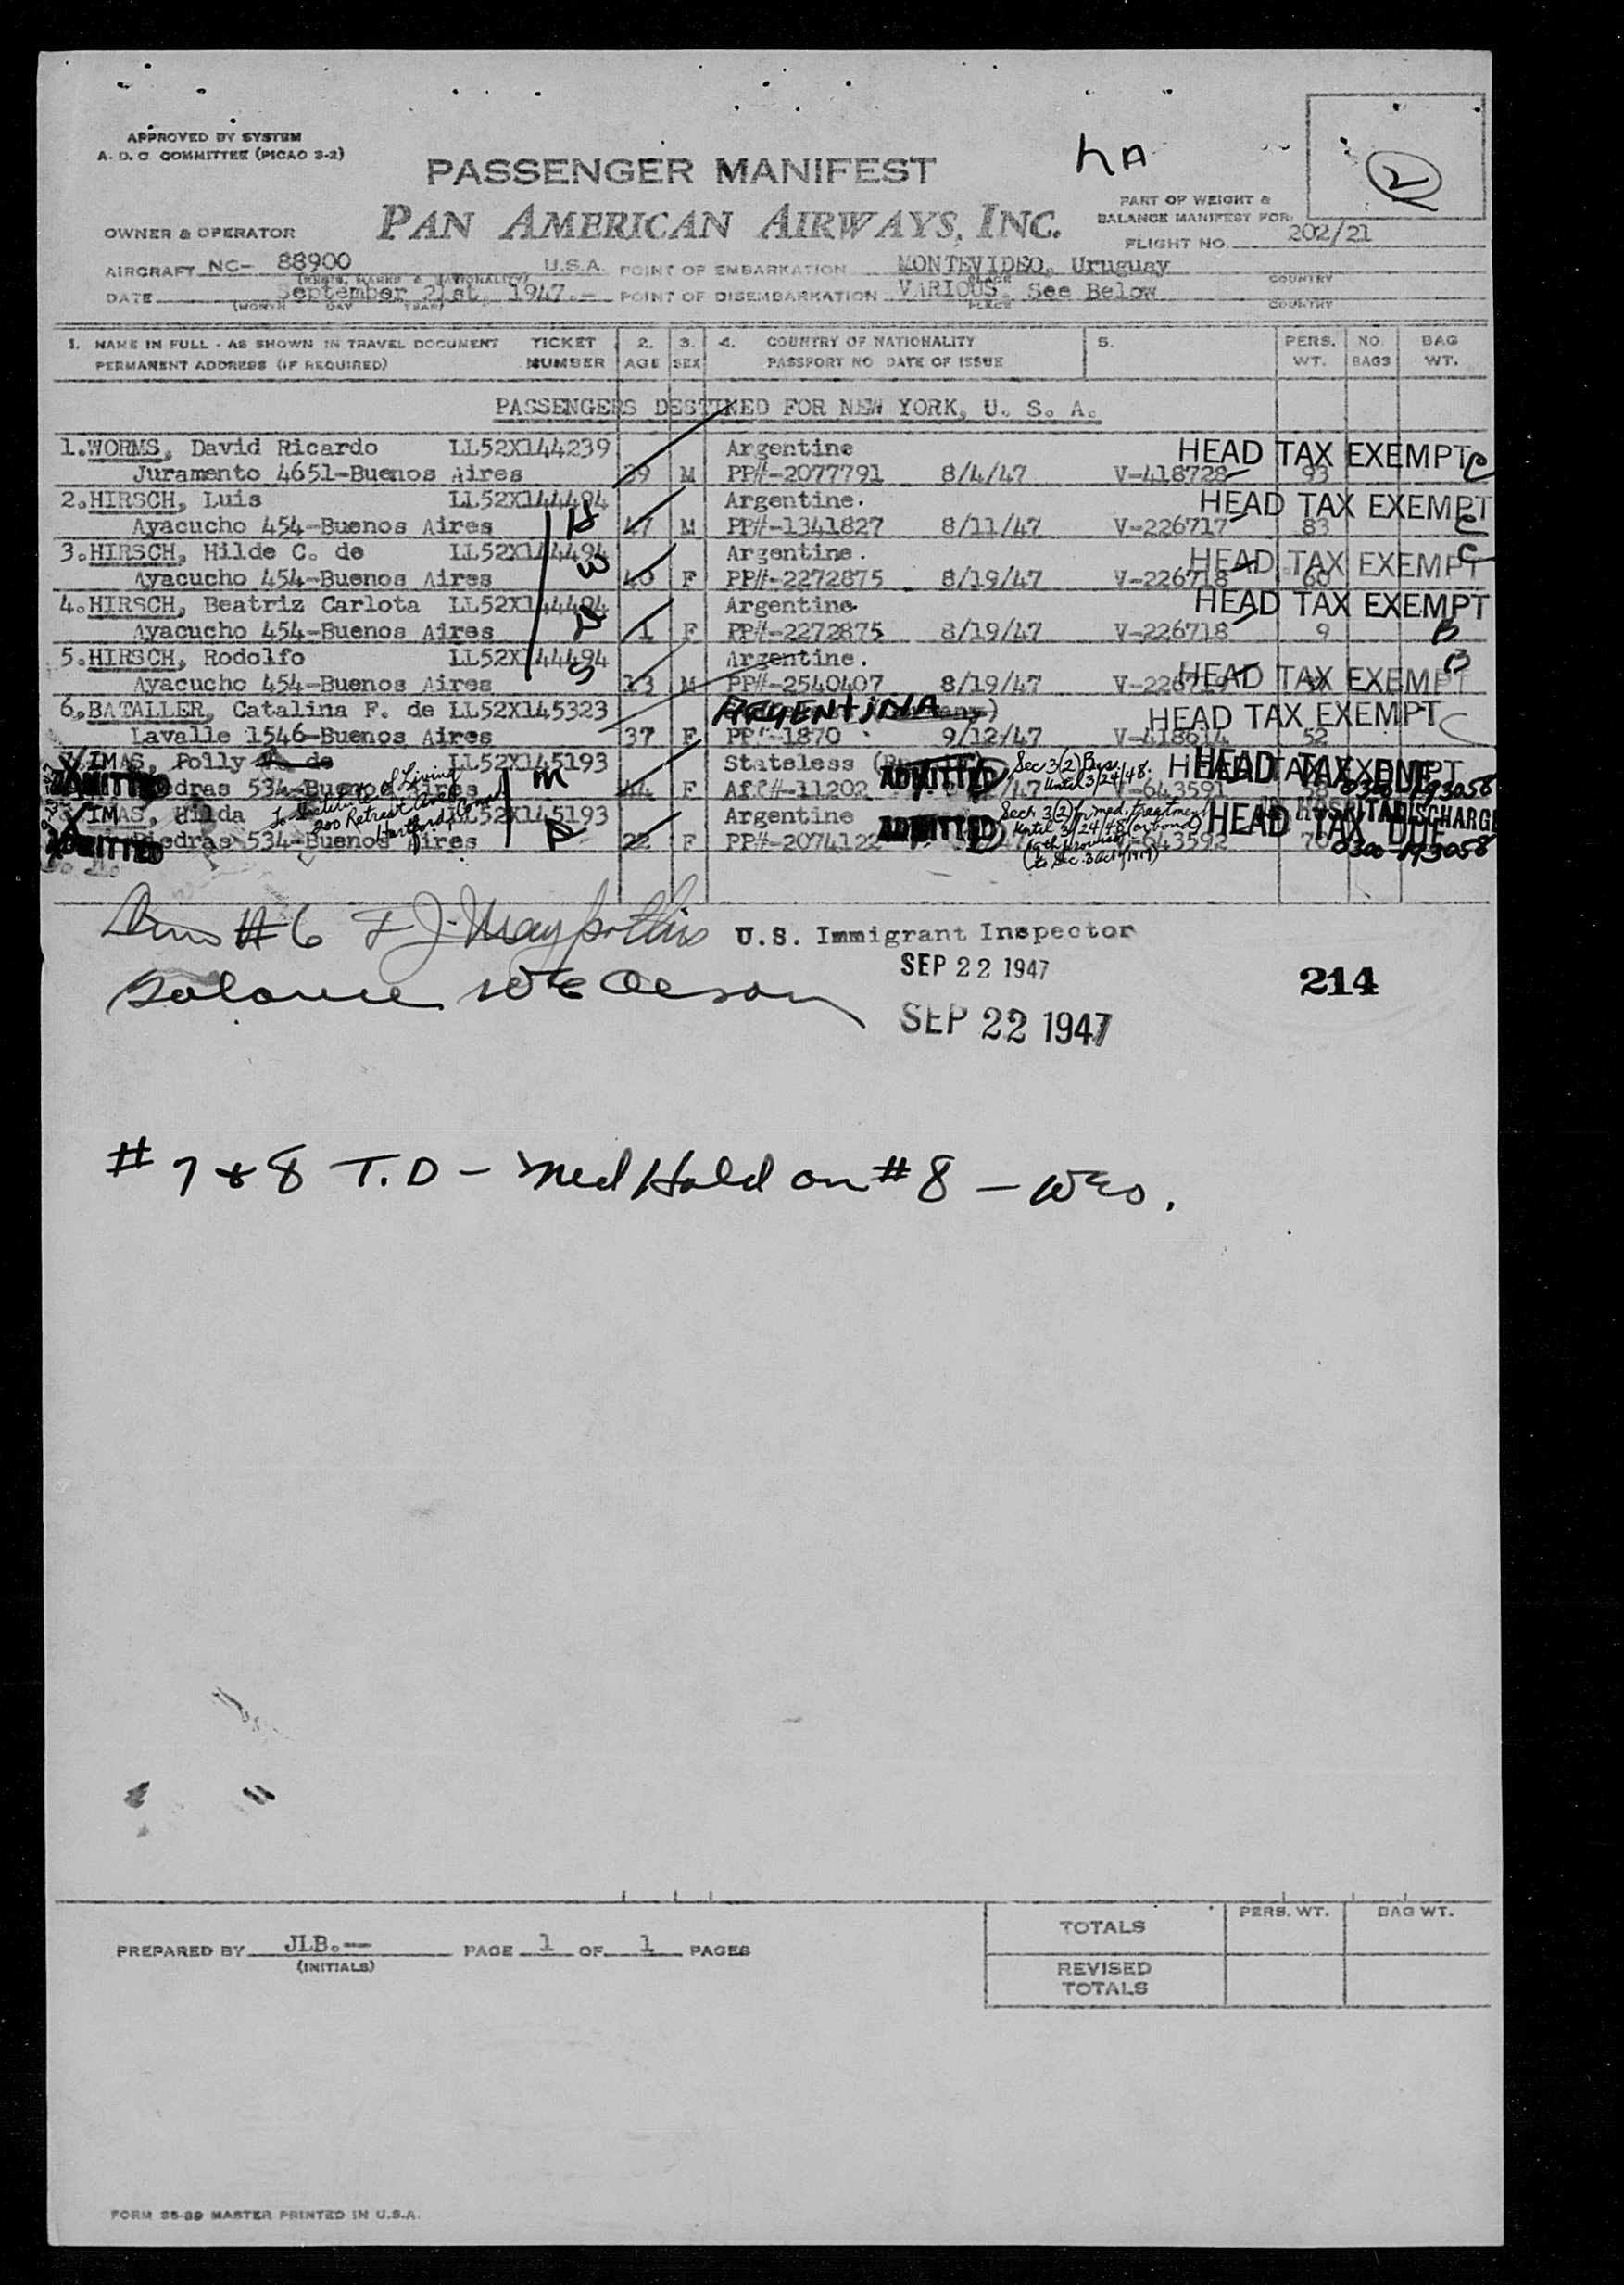 APPROVED BY SYSTEM
A. D. C. COMMITTEE (PICAO 3-2)
PASSENGER MANIFEST
2
OWNER & OPERATOR PAN AMERICAN AIRWAYS, INC.
PART OF WEIGHT &
BALANCE MANIFEST FOR
FLIGHT NO. 202/21
AIRCRAFT NC- 88900 U.S.A. POINT OF EMBARKATION MONTEVIDEO, Uruguay
(REGIS. MARKS & NATIONALITY) PLACE COUNTRY
DATE September 21st, 1947.- POINT OF DISEMBARKATION VARIOUS. See Below
(MONTH DAY YEAR) PLACE COUNTRY
1. NAME IN FULL - AS SHOWN IN TRAVEL DOCUMENT TICKET 2. 3. 4. COUNTRY OF NATIONALITY 5. PERS. NO. BAG
PERMANENT ADDRESS (IF REQUIRED) NUMBER AGE SEX PASSPORT NO DATE OF ISSUE WT. BAGS WT.
PASSENGERS DESTINED FOR NEW YORK, U. S. A.
1.WORMS, David Ricardo LL52X144239 Argentine HEAD TAX EXEMPT C
Juramento 4651-Buenos Aires 39 M PP#-2077791 8/4/47 V-418728 93
2.HIRSCH, Luis LL52X144494 Argentine. HEAD TAX EXEMPT
Ayacucho 454-Buenos Aires 47 M PP#-1341827 8/11/47 V-226717 83 C
3.HIRSCH, Hilde C. de LL52X144494 Argentine. HEAD TAX EXEMPT C
Ayacucho 454-Buenos Aires 40 F PP#-2272875 8/19/47 V-226718 60
4.HIRSCH, Beatriz Carlota LL52X144494 Argentine HEAD TAX EXEMPT
Ayacucho 454-Buenos Aires 1 F PP#-2272875 8/19/47 V-226718 9 B
5.HIRSCH, Rodolfo LL52X144494 Argentine. HEAD TAX EXEMPT B
Ayacucho 454-Buenos Aires 13 M PP#-2540407 8/19/47
6.BATALLER, Catalina F. de LL52X145323 ARGENTINA HEAD TAX EXEMPT C
Lavalle 1546-Buenos Aires 37 F PP#-1870 9/12/47 V-418614 52
IMAS, Polly de LL52X145193 M Stateless ADMITTED Sec 3(2) Bus. until 3/24/48. HEAD TAX DUE
ADMITTED Piedras 534-Buenos Aires 44 F Aff#-11202 V-643591 58 0300-193058
To Institute of Living
200 Retreat Ave
Hartford, Conn
IMAS, Hilda LL52X145193 Argentine ADMITTED Sect. 3(2) for med. treatment until 3/24/48 (on bond) HOSPITAL DISCHARGE
ADMITTED Piedras 534-Buenos Aires 22 F PP#-2074122 V-643592 70 HEAD TAX DUE 0300-193058
(9th proviso to Sec. 3 Act of 1917)
#6 U.S. Immigrant Inspector
SEP 22 1947
214
SEP 22 1947
#7 & 8 T.D - Med Hold on #8 - WEO.
TOTALS PERS. WT. BAG WT.
PREPARED BY JLB.-- PAGE 1 OF 1 PAGES
(INITIALS)
REVISED
TOTALS
FORM 35-89 MASTER PRINTED IN U.S.A.